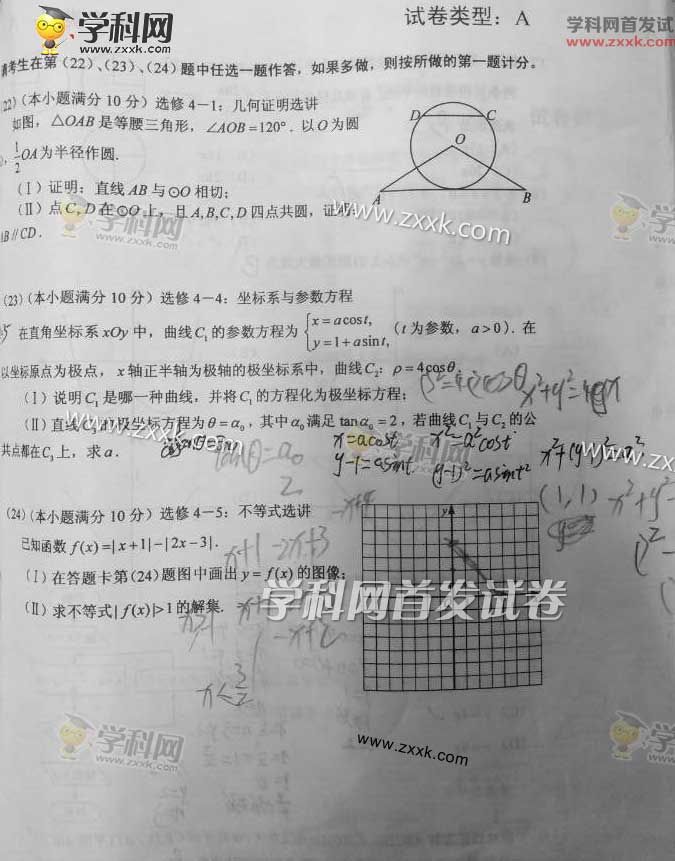 学科网
www.zxxk.com
试卷类型：A
学科网首发试
www.zxxk.com
考生在第（22）、（23）、（24）题中任选一题作答，如果多做，则按所做的第一题计分。
（22）（本小题满分 10 分）选修 4－1：几何证明选讲
如图，△OAB 是等腰三角形，∠AOB＝120°．以 O 为圆
，1/2 OA 为半径作圆．
D C
O
A B
（Ⅰ）证明：直线 AB 与⊙O 相切；
（Ⅱ）点 C, D 在⊙O 上，且 A, B, C, D 四点共圆，证明：
AB // CD．
学科网
www.zxxk.com
（23）（本小题满分 10 分）选修 4－4：坐标系与参数方程
在直角坐标系 xOy 中，曲线 C₁ 的参数方程为 { x = a cos t, y = 1 + a sin t, （t 为参数，a > 0）．在
以坐标原点为极点，x 轴正半轴为极轴的极坐标系中，曲线 C₂：ρ = 4cosθ．
（Ⅰ）说明 C₁ 是哪一种曲线，并将 C₁ 的方程化为极坐标方程；
x²+y²=4x
（Ⅱ）直线 C₃ 的极坐标方程为 θ = α₀，其中 α₀ 满足 tan α₀ = 2，若曲线 C₁ 与 C₂ 的公
共点都在 C₃ 上，求 a．
www.zxxk.com
x=acost x²=a²cost
y-1=asint (y-1)²=asint²
x²+(y-1)²=a²
tanθ=a₀
2
(1,1) x²+y²
（24）（本小题满分 10 分）选修 4－5：不等式选讲
-x+4
已知函数 f(x) = | x + 1 | − | 2x − 3 |．
x+1-2x+3
（Ⅰ）在答题卡第（24）题图中画出 y = f(x) 的图像；
（Ⅱ）求不等式 | f(x) | > 1 的解集．
y
学科网首发试卷
x<3/2
学科网
www.zxxk.com
www.zxxk.com